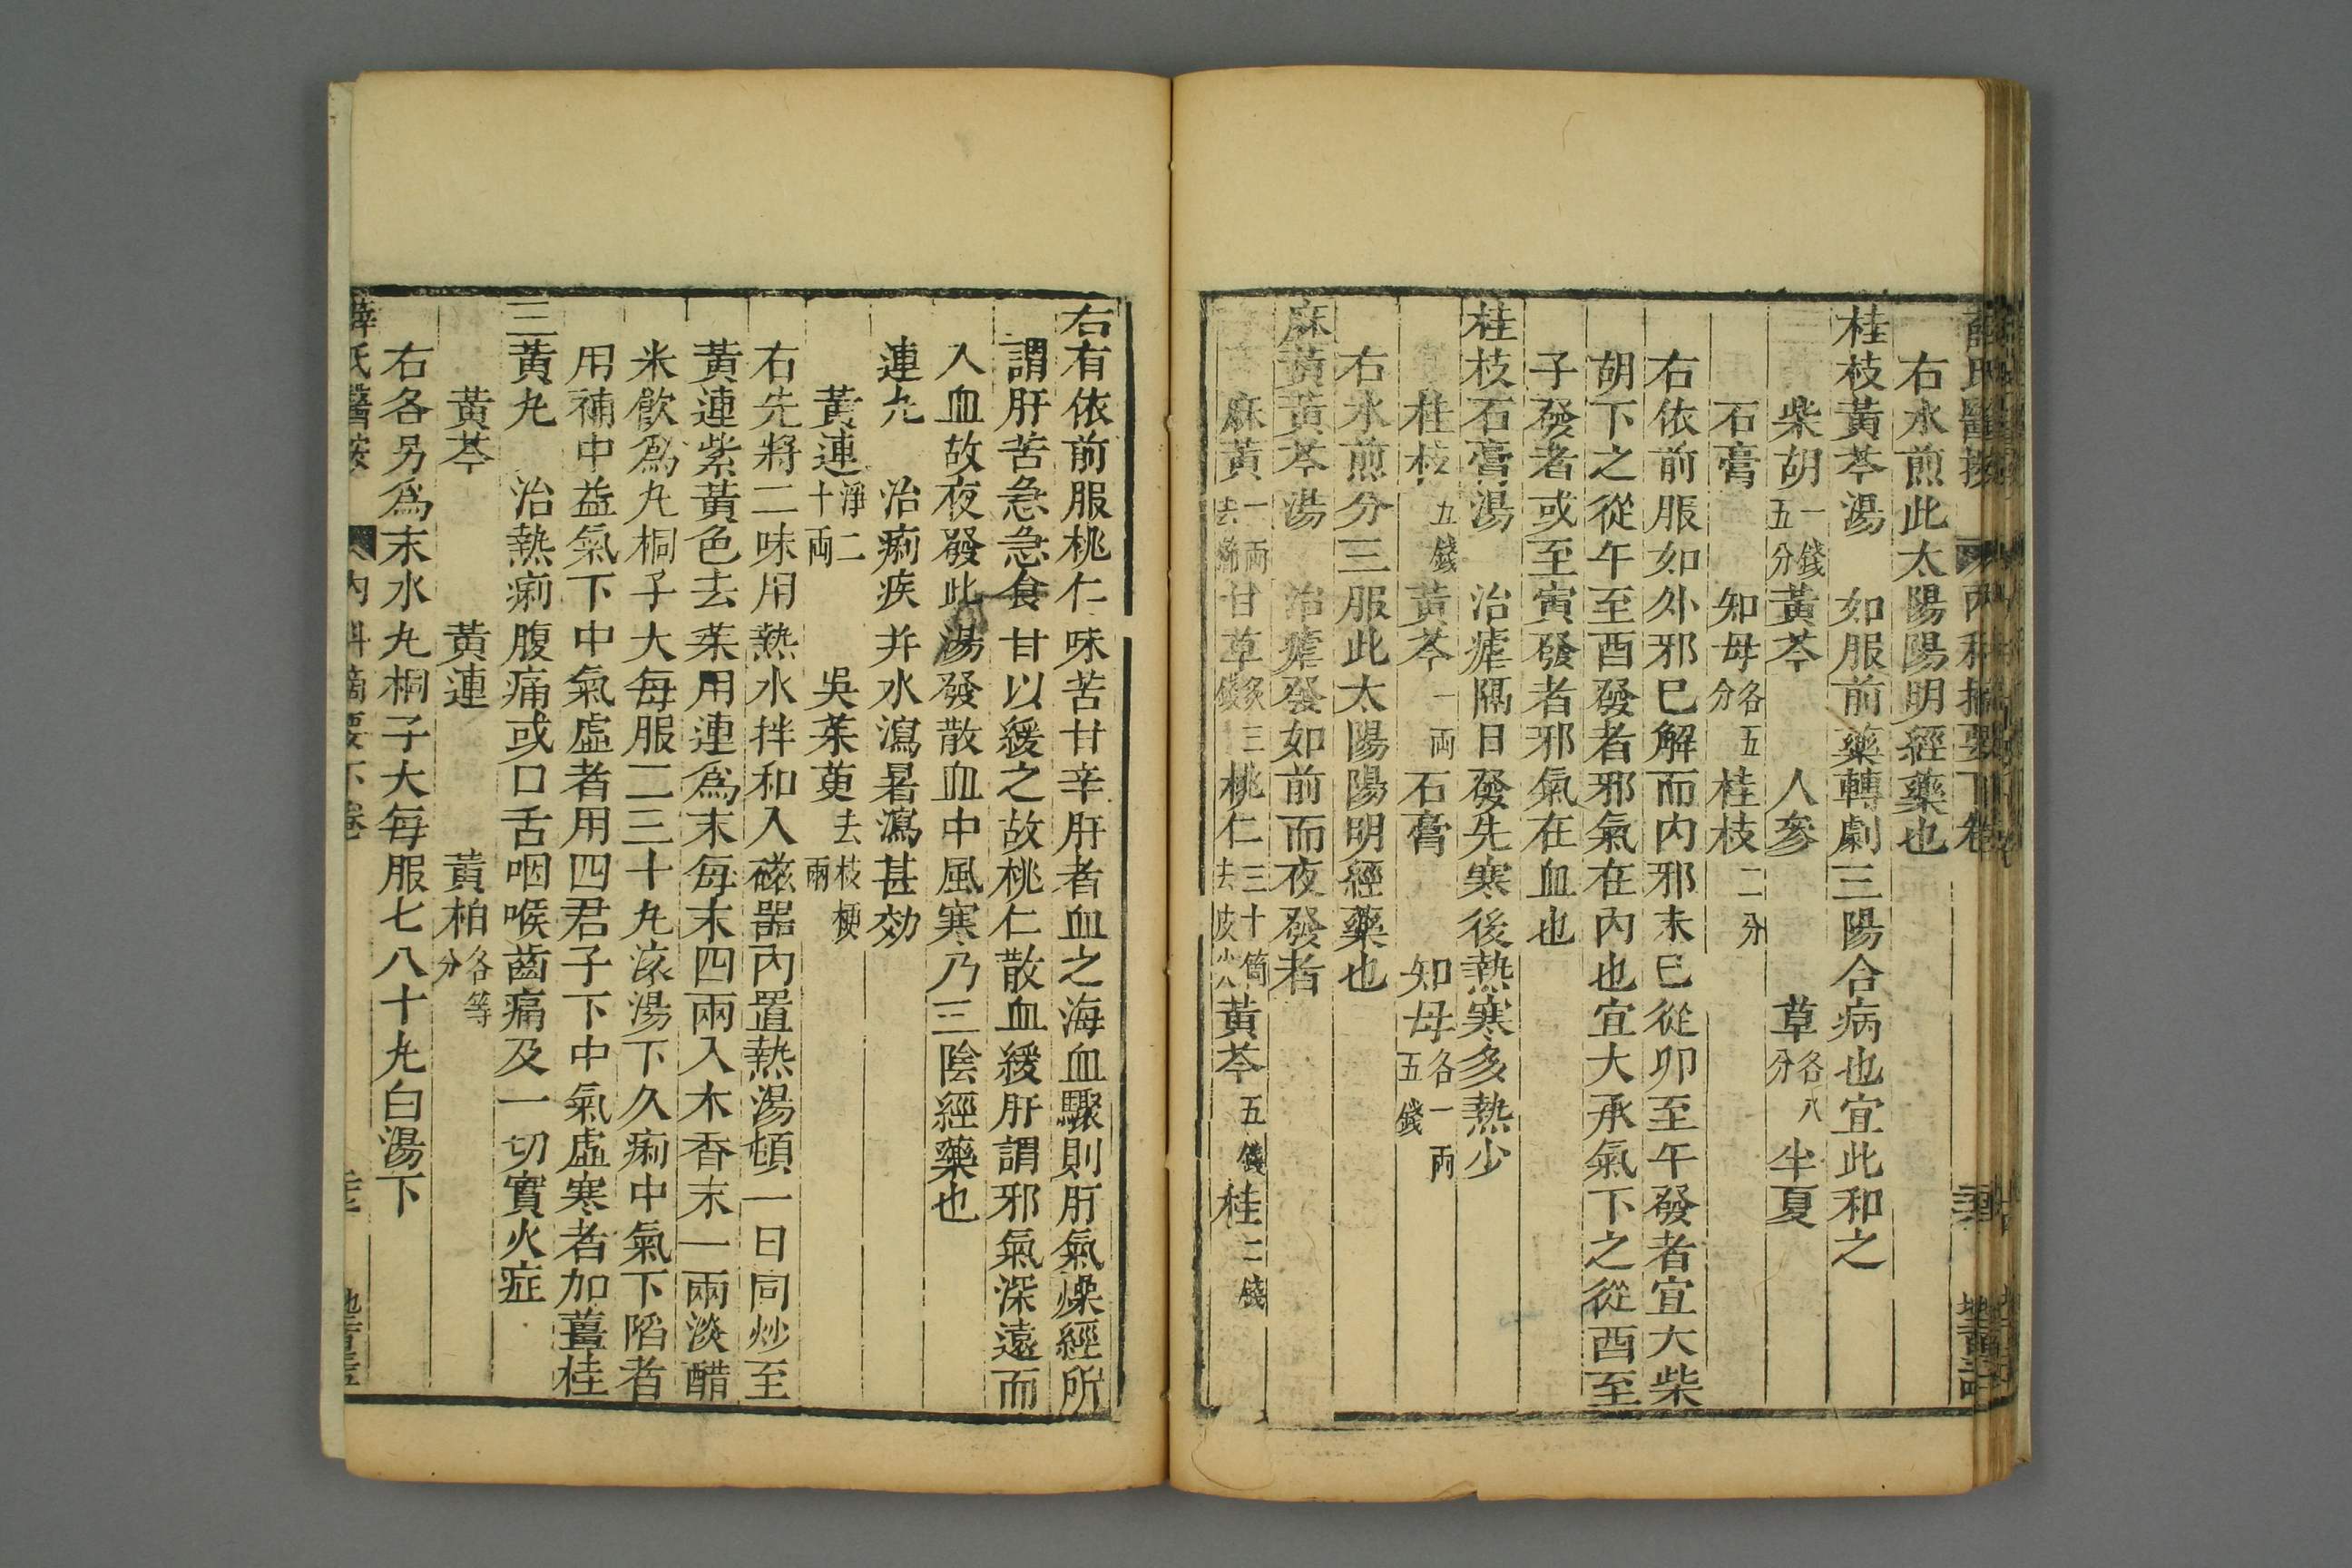 薛氏醫按 內科摘要下卷
右水煎此太陽陽明經藥也
桂枝黃芩湯 如服前藥轉劇三陽合病也宜此和之
柴胡一錢五分 黃芩 人參 草各八分 半夏
石膏 知母各五分 桂枝二分
右依前服如外邪已解而內邪未已從卯至午發者宜大柴
胡下之從午至酉發者邪氣在內也宜大承氣下之從酉至
子發者或至寅發者邪氣在血也
桂枝石膏湯 治瘧隔日發先寒後熱寒多熱少
桂枝五錢 黃芩一兩 石膏 知母各一兩五錢
右水煎分三服此太陽陽明經藥也
麻黃黃芩湯 治瘧發如前而夜發者
麻黃一兩去節 甘草炙三錢 桃仁三十箇去皮尖 黃芩五錢 桂二錢
右有依前服桃仁味苦甘辛肝者血之海血驟則肝氣燥經所
謂肝苦急急食甘以緩之故桃仁散血緩肝謂邪氣深遠而
入血故夜發此湯發散血中風寒乃三陰經藥也
連丸 治痢疾并水瀉暑瀉甚效
黃連淨二十兩 吳茱萸去枝梗兩
右先將二味用熱水拌和入磁器內置熱湯頓一日同炒至
黃連紫黃色去茱用連為末每末四兩入木香末一兩淡醋
米飲為丸桐子大每服二三十丸滾湯下久痢中氣下陷者
用補中益氣下中氣虛者用四君子下中氣虛寒者加薑桂
三黃丸 治熱痢腹痛或口舌咽喉齒痛及一切實火症
黃芩 黃連 黃柏各等分
右各另為末水丸桐子大每服七八十丸白湯下
薛氏醫按 內科摘要下卷